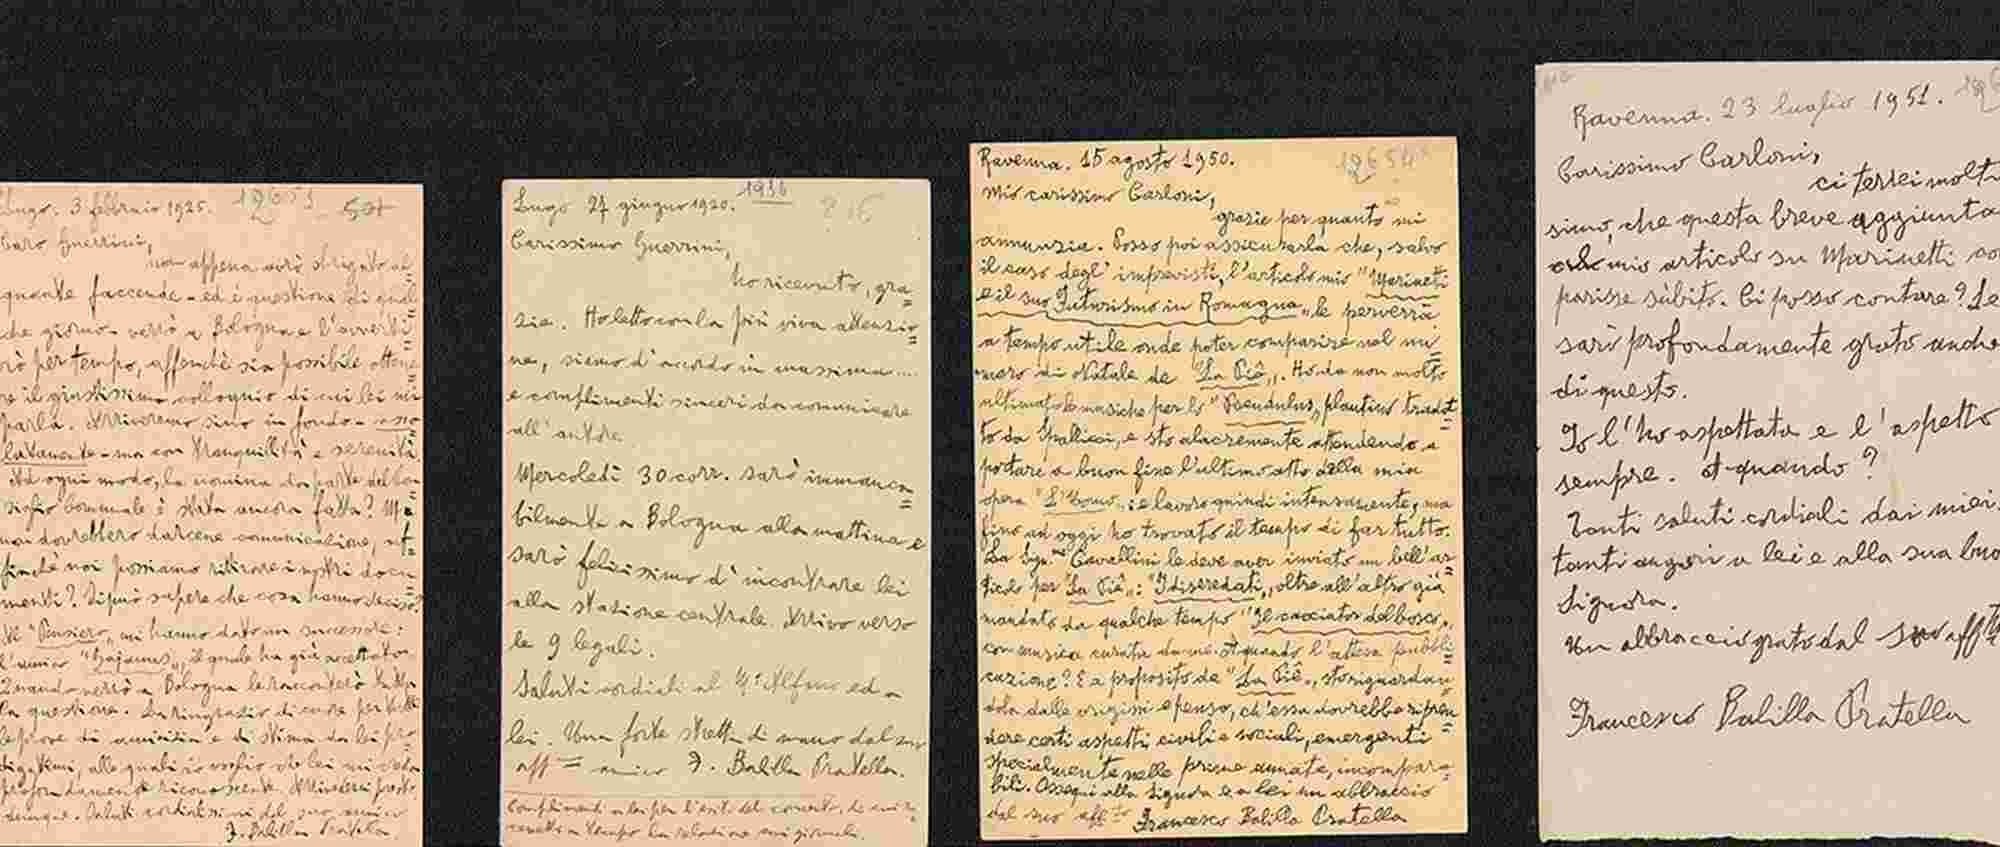 Lugo. 3 febbraio 1925.
Caro Guerrini,
non appena avrò sbrigato al=
quante faccende - ed è questione di qual
che giorno - verrò a Bologna e l'avverti=
rò per tempo, affinchè sia possibile ottene=
re il giustissimo colloquio di cui lei mi
parla. Arriveremo sino in fondo - asso=
lutamente - ma con tranquillità e serenità.
Ad ogni modo, la nomina da parte del Con=
siglio Comunale è stata ancora fatta?
noi dovrebbero darcene comunicazione, af=
finchè noi possiamo ritirare i nostri docu=
menti? Si può sapere che cosa hanno deciso?
Al "Pensiero" mi hanno dato un successore:
l'amico "Gajanus", il quale ha già accettato.
Quando verrò a Bologna le racconterò tutta
la questione. La ringrazio di cuore per tutte
le prove di amicizia e di stima da lei pro=
digatemi, alle quali io voglio che lei mi creda
profondamente riconoscente. Arrivederci presto
dunque. Saluti cordialissimi dal suo amico
F. Balilla Pratella.
Lugo 27 giugno 1920.
1936
Carissimo Guerrini,
ho ricevuto, gra=
zie. Ho letto con la più viva attenzio=
ne, siamo d'accordo in massima....
e complimenti sinceri da comunicare
all'autore.
Mercoledì 30 corr. sarò immanca=
bilmente a Bologna alla mattina e
sarò felicissimo d'incontrare lei
alla stazione centrale. Arrivo verso
le 9 legali.
Saluti cordiali al M° Alfano ed a
lei. Una forte stretta di mano dal suo
aff= amico F. Balilla Pratella.
Complimenti a lei per l'esito del concerto.
a tempo la relazione sui giornali.
Ravenna. 15 agosto 1950.
12654
Mio carissimo Carloni,
grazie per quanto mi
annunzia. Posso poi assicurarla che, salvo
il caso degl'imprevisti, l'articolo mio "Marinetti
e il suo Futurismo in Romagna" le perverrà
a tempo utile onde poter comparire nel nu=
mero di Natale de "La Piê". Ho da non molto
ultimato le musiche per lo "Pseudulus" plautino tradot=
to da Spallicci, e sto alacremente attendendo a
portare a buon fine l'ultimo atto della mia
opera "L'Uomo": e lavoro quindi intensamente, ma
fino ad oggi ho trovato il tempo di far tutto.
La Sig.na Cavallini le deve aver inviato un bell'ar=
ticolo per "La Piê": "I diseredati", oltre all'altro già
mandato da qualche tempo "Il cacciator del bosco",
con musica curata da me. A quando l'attesa pubbli=
cazione? E a proposito de "La Piê", sto riguardan=
dola dalle origini e penso, ch'essa dovrebbe ripren=
dere certi aspetti civili e sociali, emergenti
specialmente nelle prime annate, incompara=
bili. Ossequi alla Signora e a lei un abbraccio
dal suo aff.mo Francesco Balilla Pratella
Ravenna. 23 luglio 1951.
Carissimo Carloni,
ci terrei molti
simo, che questa breve aggiunta
al mio articolo su Marinetti com
parisse sùbito. Ci posso contare? Le
sarò profondamente grato anche
di questo.
Io l'ho aspettata e l'aspetto
sempre. A quando?
Tanti saluti cordiali dai miei.
tanti auguri a lei e alla sua buo
Signora.
Un abbraccio grato dal suo aff.mo
Francesco Balilla Pratella